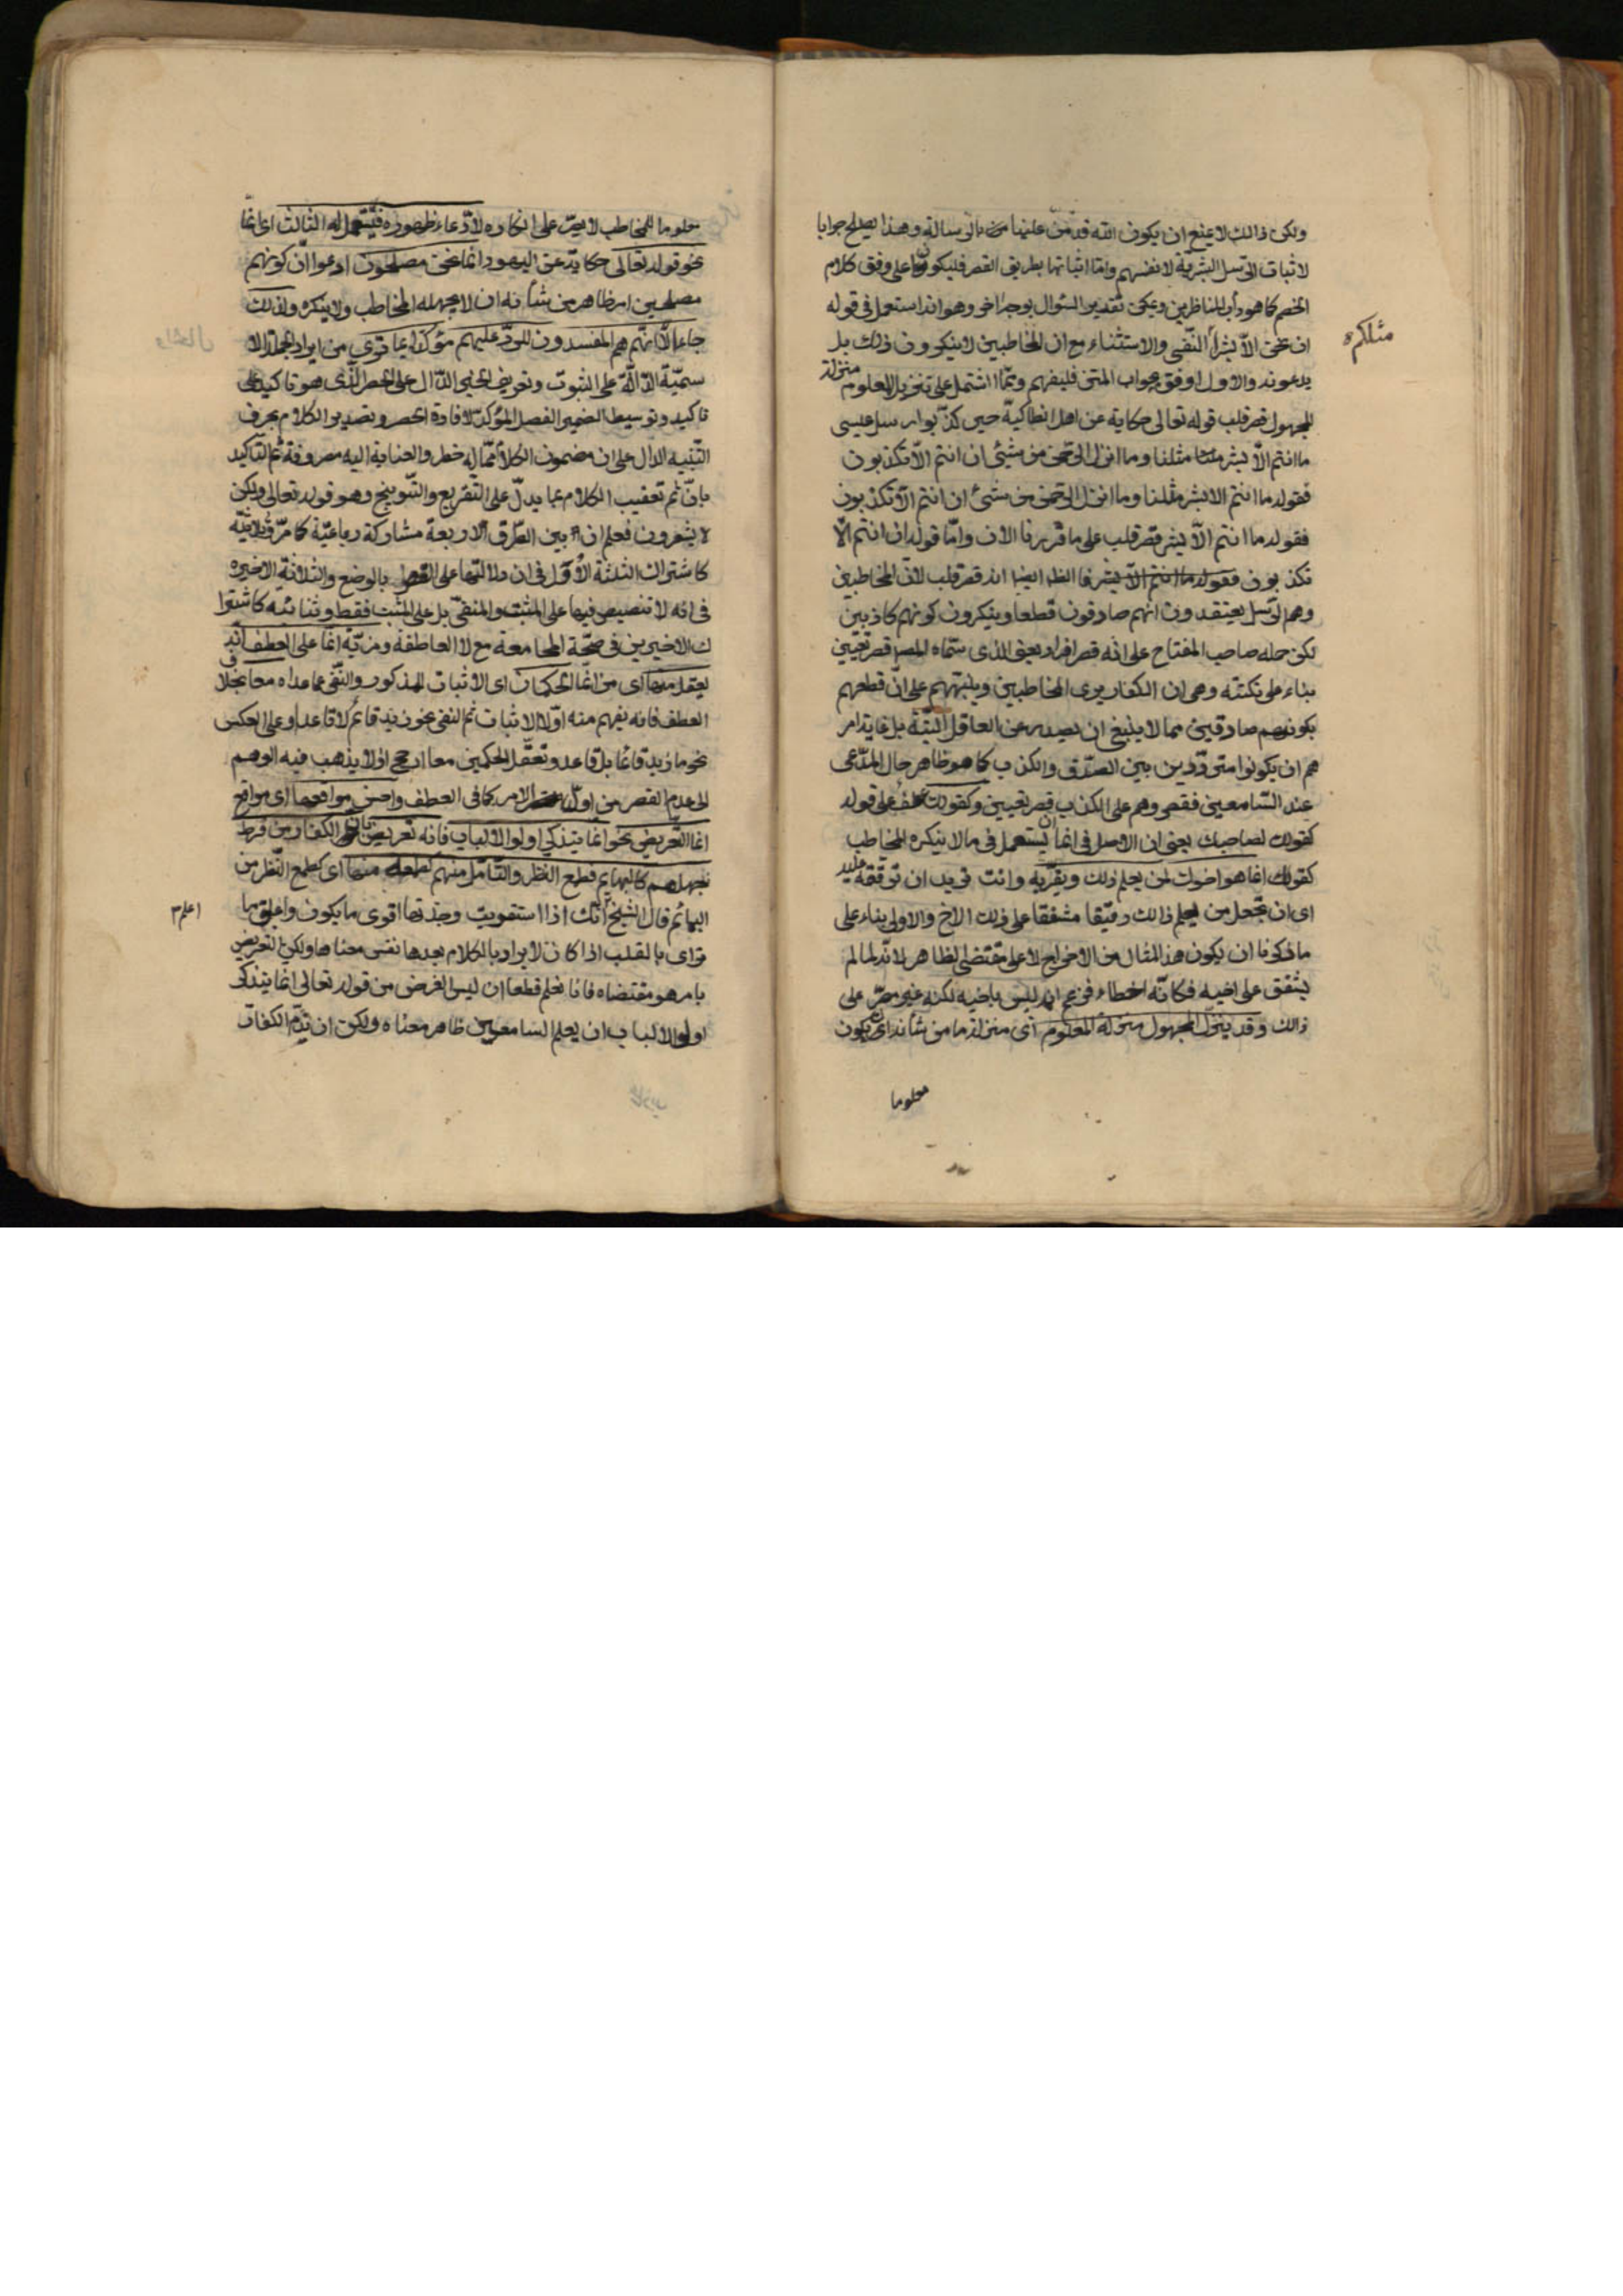 ولكن ذالك لا يمنع ان يكون الله قد من علينا بالرسالة وهذا يصلح جوابا
لاثبات الرسل البشرية لانفسهم واما اثباتها بطريق القصر فليكون على وفق كلام
الخصم كما هو دأب المناظرين ويمكن تقدير السؤال بوجه اخر وهو انه استعمل في قوله
ان نحن الا بشر النفى والاستثناء مع ان المخاطبين لا ينكرون ذلك بل
يدعونه والاول اوفق بجواب المتن فليفهم ومما اشتمل على تنزيل المعلوم منزلة
المجهول قصر قلب قوله تعالى حكاية عن اهل انطاكية حين كذبوا رسل عيسى
ما انتم الا بشر مثلنا وما انزل الرحمن من شيئ ان انتم الا تكذبون
فقوله ما انتم الا بشر مثلنا وما انزل الرحمن من شئ ان انتم الا تكذبون
فقوله ما انتم الا بشر قصر قلب على ما قررنا الان واما قوله ان انتم الا
تكذبون فقوله ما انتم الا بشر فالظ ايضا انه قصر قلب لان المخاطبين
وهم الرسل يعتقدون انهم صادقون قطعا وينكرون كونهم كاذبين
لكن حمله صاحب المفتاح على انه قصر افراد يعنى الذى سماه المصـ قصر تعيين
بناء على نكتته وهى ان الكفار يرى المخاطبين وينبههم على ان قطعهم
بكونهم صادقين مما لا ينبغ ان يصدر عن العاقل البتة بل غاية امر
هم ان يكونوا مترددين بين الصدق والكذب كما هو ظاهر حال المدعى
عند السامعين فقصروهم على الكذب قصر تعيين وكقولك عطف على قوله
كقولك لصاحبك يعنى ان الاصل فى انما ان يستعمل فى ما لا ينكره المخاطب
كقولك انما هو اخوك لمن يعلم ذلك ويقر به وانت تريد ان ترققه عليه
اى ان تجعل من يعلم ذالك رقيقا مشفقا على ذلك الاخ والاولى بناء على
ما ذكرنا ان يكون هذا المثال من الاخراج لا على مقتضى الظاهر لانه لما لم
يشفق على اخيه فكانه اخطاء فزعم انه ليس باخيه لكنه غير مصر على
ذالك وقد ينزل المجهول منزلة المعلوم اى منزلة ما من شأنه ان يكون
معلوما
مثلكم
معلوما للمخاطب لا يصر على انكاره لادعاء ظهوره فيستعمل له الثالث اى انما
نحو قوله تعالى حكاية عن اليهود انما نحن مصلحون ادعوا ان كونهم
مصلحين امر ظاهر من شأنه ان لا يجهله المخاطب ولا ينكره ولذلك
جاء الا انهم هم المفسدون للرد عليهم مؤكدا بما ترى من ايراد الجملة الا
سمية الدالة على الثبوت وتعريف الخبر الدال على الحصر الذى هو تاكيد على
تاكيد وتوسيط الضمير الفصل المؤكد لافادة الحصر وتصدير الكلام بحرف
التنبيه الدال على ان مضمون الكلام مما له خطر والعناية اليه مصروفة ثم التاكيد
بان ثم تعقيب الكلام بما يدل على التقريع والتوبيخ وهو قوله تعالى ولكن
لا يشعرون فعلم ان بين الطرق الاربعة مشاركة رباعية كما مر وثلاثية
كاشتراك الثلثة الاول فى ان دلالتها على القصر بالوضع والثلاثة الاخيره
فى انه لا تنصيص فيها على المثبت والمنفى بل على المثبت فقط وثنائية كاشترا
ك الاخيرين فى صحة المجامعة مع لا العاطفة ومزية انما على العطف انه
يعقل منها اى من انما الحكمان اى الاثبات للمذكور والنفى عما عداه معا بخلاف
العطف فانه يفهم منه اولا الاثبات ثم النفى نحو زيد قائم لا قاعد او على العكس
نحو ما زيد قائما بل قاعد وتعقل الحكمين معا ارجح اذ لا يذهب فيه الوهم
الى عدم القصر من اول الامر كما فى العطف واحسن مواقعها اى مواقع
انما التعريض نحو انما يتذكر اولو الالباب فانه تعريض بان الكفار من فرط
جهلهم كالبهايم فطمع النظر والتأمل منهم كطمعه منها اى كطمع النظر من
البهائم قال الشيخ اعلم انك اذا استقريت وجدتها اقوى ما يكون واعلق ما
ترى بالقلب اذا كان لا يراد بالكلام بعدها نفس معناها ولكن التعريض
بامر هو مقتضاه فانا نعلم قطعا ان ليس الغرض من قوله تعالى انما يتذكر
اولو الالباب ان يعلم السامعين ظاهر معناه ولكن ان تذم الكفار
اعلم